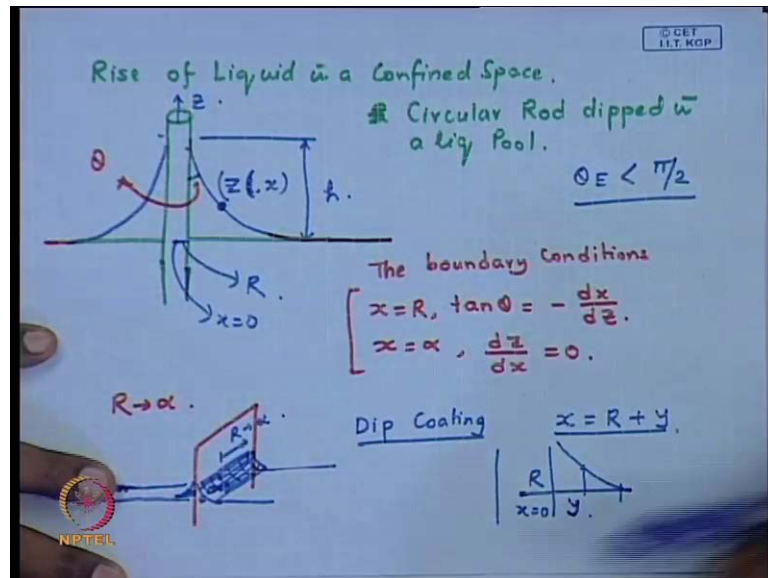 © CET
I.I.T. KGP
Rise of Liquid in a Confined Space.
Circular Rod dipped in
a liq Pool.
θE < π/2
z.
θ
(z(.x)
h.
R.
x=0
The boundary Conditions
x=R, tanθ = - dx/dz.
x=α, dz/dx = 0.
R→α.
R→α.
Dip Coating
x = R + y.
R
x=0
y.
NPTEL